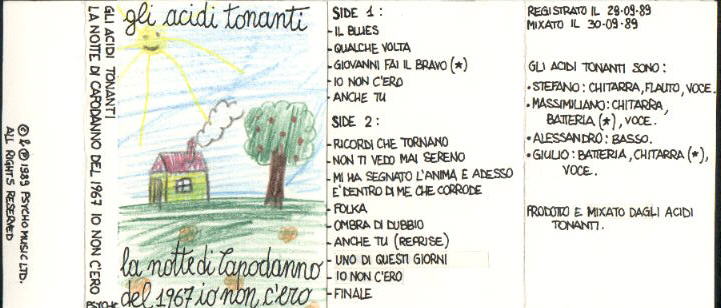 © & ℗ 1989 PSYCHO MUSIC LTD.
ALL RIGHTS RESERVED
GLI ACIDI TONANTI
LA NOTTE DI CAPODANNO DEL 1967 IO NON C'ERO
PSYCHO
gli acidi tonanti
la notte di Capodanno
del 1967 io non c'ero
SIDE 1:
- IL BLUES
- QUALCHE VOLTA
- GIOVANNI FAI IL BRAVO (*)
- IO NON C'ERO
- ANCHE TU
SIDE 2:
- RICORDI CHE TORNANO
- NON TI VEDO MAI SERENO
- MI HA SEGNATO L'ANIMA E ADESSO
E' DENTRO DI ME CHE CORRODE
- POLKA
- OMBRA DI DUBBIO
- ANCHE TU (REPRISE)
- UNO DI QUESTI GIORNI
- IO NON C'ERO
- FINALE
REGISTRATO IL 28·09·89
MIXATO IL 30·09·89
GLI ACIDI TONANTI SONO:
• STEFANO: CHITARRA, FLAUTO, VOCE.
• MASSIMILIANO: CHITARRA,
BATTERIA (*), VOCE.
• ALESSANDRO: BASSO.
• GIULIO: BATTERIA, CHITARRA (*),
VOCE.
PRODOTTO E MIXATO DAGLI ACIDI
TONANTI.